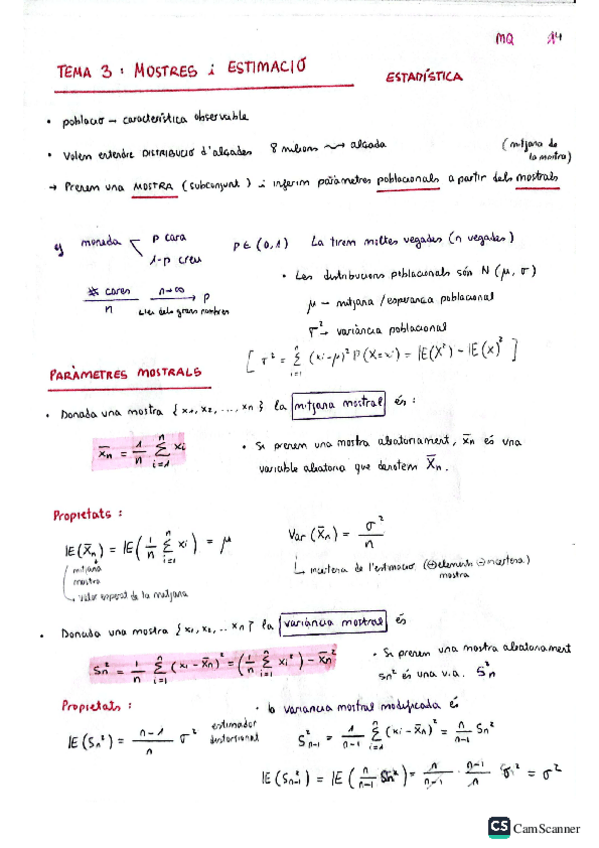 MQ 14
TEMA 3 : MOSTRES i ESTIMACIÓ
ESTADÍSTICA
• població → característica observable
• Volem entendre DISTRIBUCIÓ d'alçades 8 milions ⇝ alçada (mitjana de la mostra)
→ Prenem una MOSTRA (subconjunt) i inferim paràmetres poblacionals a partir dels mostrals
ej moneda < p cara
1-p creu
p ∈ (0,1) La tirem moltes vegades (n vegades)
# cares / n n→∞ → p
Llei dels grans nombres
• Les distribucions poblacionals són N(μ, σ)
μ → mitjana / esperança poblacional
σ² → variància poblacional
[ σ² = Σ_{i=1}^{n} (xi-μ)² P(X=xi) = IE(X²) - IE(X)² ]
PARÀMETRES MOSTRALS
• Donada una mostra {x₁, x₂, ..., xn} la mitjana mostral és :
x̄n = 1/n Σ_{i=1}^{n} xi
• Si prenem una mostra aleatoriament, x̄n és una
variable aleatoria que denotem X̄n.
Propietats :
IE(X̄n) = IE(1/n Σ_{i=1}^{n} xi) = μ
mitjana
mostra
→ valor esperat de la mitjana
Var(X̄n) = σ²/n
↳ incertesa de l'estimació (⊕elements ⊖incertesa)
mostra
• Donada una mostra {x₁, x₂, .. xn} la variància mostral és
Sn² = 1/n Σ_{i=1}^{n} (xi - x̄n)² = (1/n Σ_{i=1}^{n} xi²) - x̄n²
• Si prenem una mostra aleatoriament
sn² és una v.a. Sn²
Propietats :
IE(Sn²) = n-1/n σ² estimador
distorsionat
• la variancia mostral modificada és
S²n-1 = 1/n-1 Σ_{i=1}^{n} (xi - x̄n)² = n/n-1 Sn²
IE(S²n-1) = IE(n/n-1 Sn²) = n/n-1 · n-1/n σ² = σ²
CS CamScanner